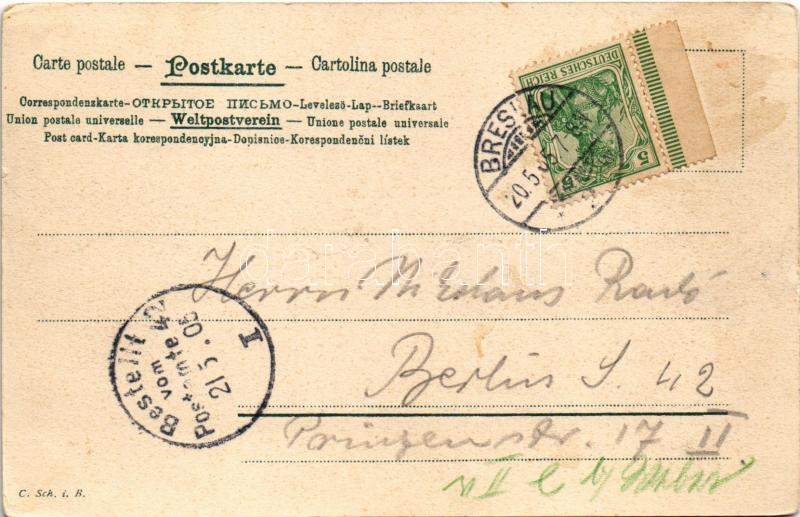 Carte postale — Postkarte — Cartolina postale
Correspondenzkarte-ОТКРЫТОЕ ПИСЬМО-Levelező-Lap--Briefkaart
Union postale universelle — Weltpostverein — Unione postale universale
Post card-Karta korespondencyjna-Dopisnice-Korespondenční lístek
DEUTSCHES REICH
5 5
BRESLAU
20.5.05
darabanth
Herrn Nikolaus Radó
Berlin S. 42
Prinzenstr. 17 II
Bestellt
vom
Postamte 42
21 5. 05
I
C. Sch. i. B.